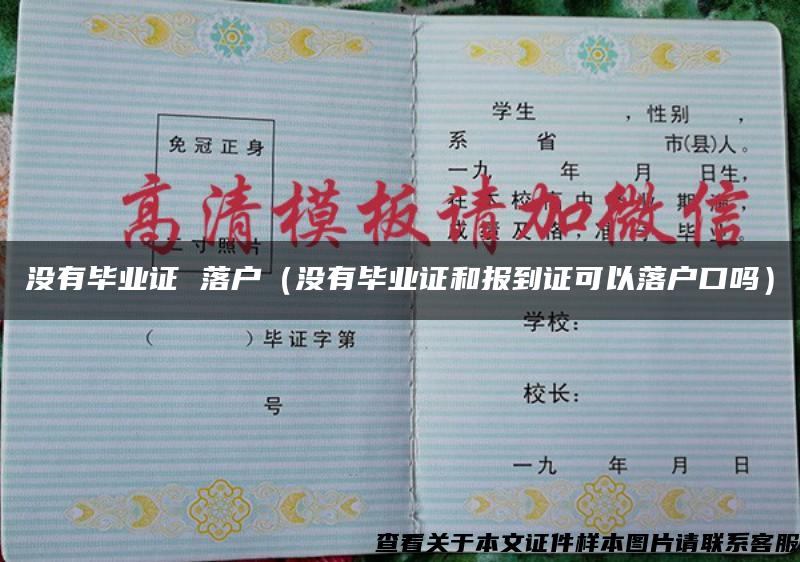 免冠正身
二寸照片
（ ）毕证字第
号
学生 ，性别 ，
系 省 市(县)人。
一九 年 月 日生，
在 校高中 业 期满，
成绩及格，准予毕业。
学校：
校长：
一九 年 月 日
高清模板请加微信
没有毕业证 落户（没有毕业证和报到证可以落户口吗）
查看关于本文证件样本图片请联系客服